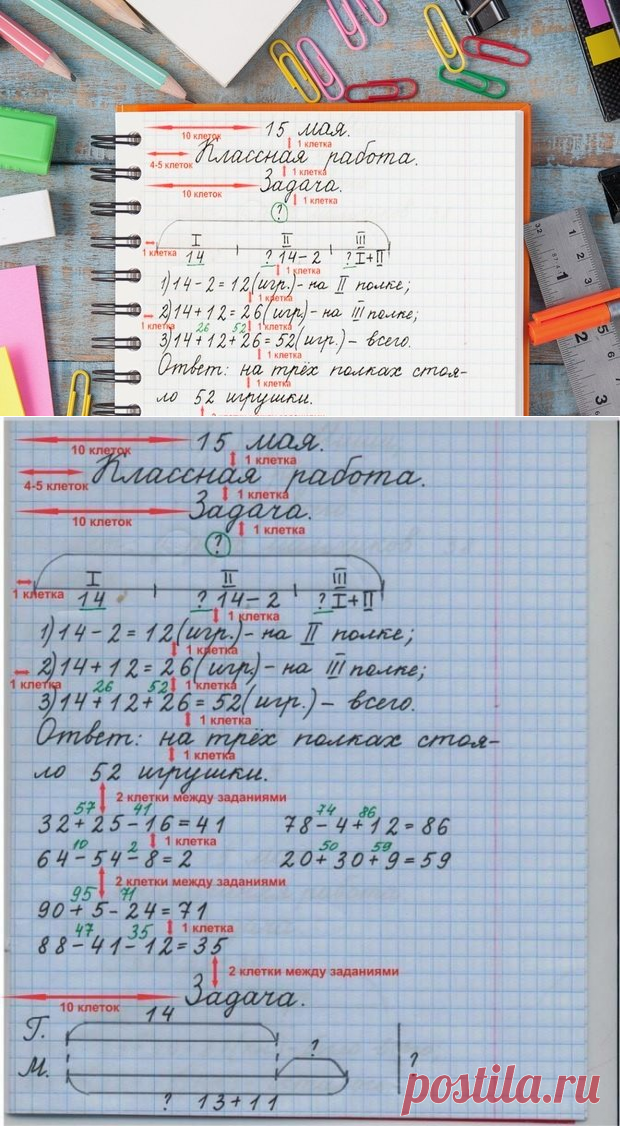 10 клеток 15 мая.
1 клетка
4-5 клеток Классная работа.
1 клетка
10 клеток Задача.
1 клетка
?
I II III
1 клетка 14 ? 14-2 ? I+II
1 клетка
1) 14-2=12(игр.)- на II полке;
1 клетка
2) 14+12=26(игр.)- на III полке;
1 клетка 26 52 1 клетка
3) 14+12+26=52(игр.)- всего.
1 клетка
Ответ: на трёх полках стоя-
1 клетка
ло 52 игрушки.
10 клеток 15 мая.
1 клетка
4-5 клеток Классная работа.
1 клетка
10 клеток Задача.
1 клетка
?
I II III
1 клетка 14 ? 14-2 ? I+II
1 клетка
1) 14-2=12(игр.)- на II полке;
1 клетка
2) 14+12=26(игр.)- на III полке;
1 клетка 26 52 1 клетка
3) 14+12+26=52(игр.)- всего.
1 клетка
Ответ: на трёх полках стоя-
1 клетка
ло 52 игрушки.
2 клетки между заданиями
57 41 74 86
32+25-16=41 78-4+12=86
10 2 1 клетка 50 59
64-54-8=2 20+30+9=59
2 клетки между заданиями
95 71
90+5-24=71
47 35 1 клетка
88-41-12=35
2 клетки между заданиями
10 клеток Задача.
14
Г.
?
М. ?
? 13+11
postila.ru